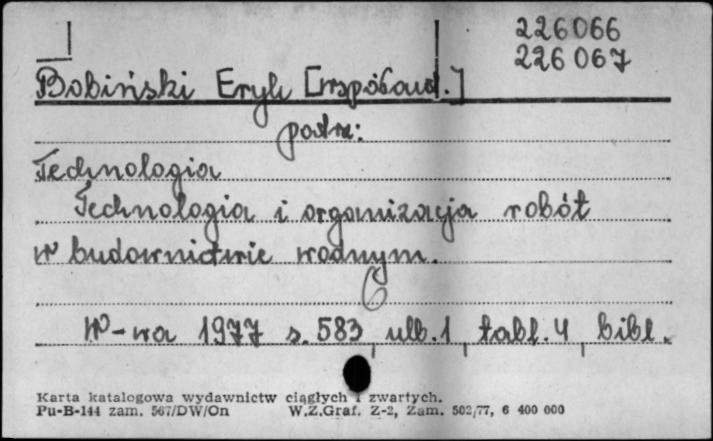 226066
226067
Bobiński Eryk [współaut.]
patrz:
Technologia
Technologia i organizacja robót
w budownictwie wodnym.
6
W-wa 1977 s. 583, ulb. 1, tabl. 4, bibl.
Karta katalogowa wydawnictw ciągłych i zwartych.
Pu-B-144 zam. 567/DW/On W.Z.Graf. Z-2, Zam. 502/77, 6 400 000